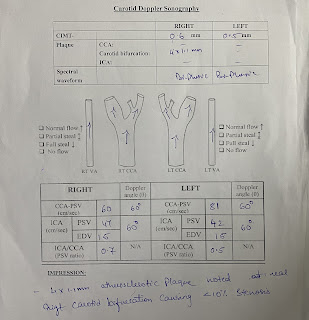 Carotid Doppler Sonography
RIGHT LEFT
CIMT- 0.6 mm 0.5 mm
Plaque CCA: - -
Carotid bifurcation: 4x1.1 mm -
ICA: - -
Spectral waveform
☐ Normal flow ↑ ☐ Normal flow ↑
☐ Partial steal ↓ ☐ Partial steal ↓
☐ Full steal ↓ ☐ Full steal ↓
☐ No flow ☐ No flow
RT VA RT CCA LT CCA LT VA
RIGHT Doppler angle (θ) LEFT Doppler angle (θ)
CCA-PSV (cm/sec) 60 60° CCA-PSV (cm/sec) 81 60°
ICA (cm/sec) PSV 47 60° ICA (cm/sec) PSV 42 60°
EDV 15 EDV 15
ICA/CCA (PSV ratio) 0.7 N/A ICA/CCA (PSV ratio) 0.5 N/A
IMPRESSION:
- 4x1.1mm atherosclerotic Plaque noted at
Right carotid bifurcation causing <10% stenosis